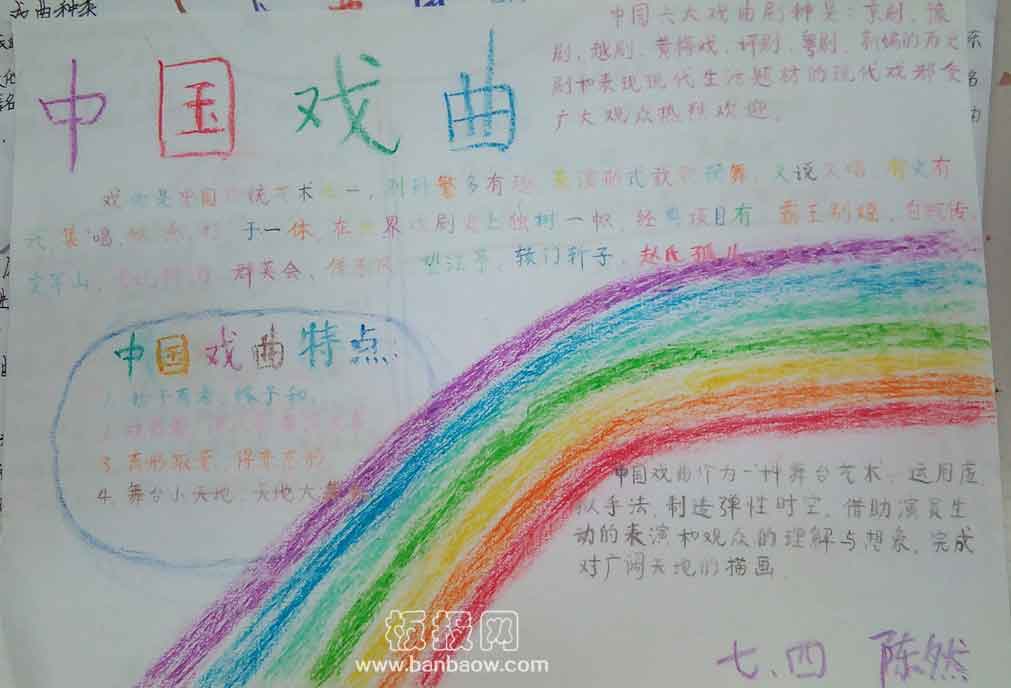 中国戏曲
中国六大戏曲剧种是:京剧、豫
剧、越剧、黄梅戏、评剧、粤剧、新编的历史
剧和表现现代生活题材的现代戏都受
广大观众热烈欢迎。
戏曲是中国传统艺术之一,剧种繁多有趣,表演形式载歌载舞,又说又唱,有文有
武,集唱、于一体,在世界戏剧史上独树一帜,经典项目有:霸王别姬、白蛇传、
定军山、群英会、望江亭、辕门斩子、赵氏孤儿
中国戏曲特点
3.离形取意,得意忘形
4.舞台小天地,天地大舞台
中国戏曲作为一种舞台艺术,运用虚
拟手法,制造弹性时空,借助演员生
动的表演和观众的理解与想象,完成
对广阔天地的描画
七、四 陈然
板报网
www.banbaow.com